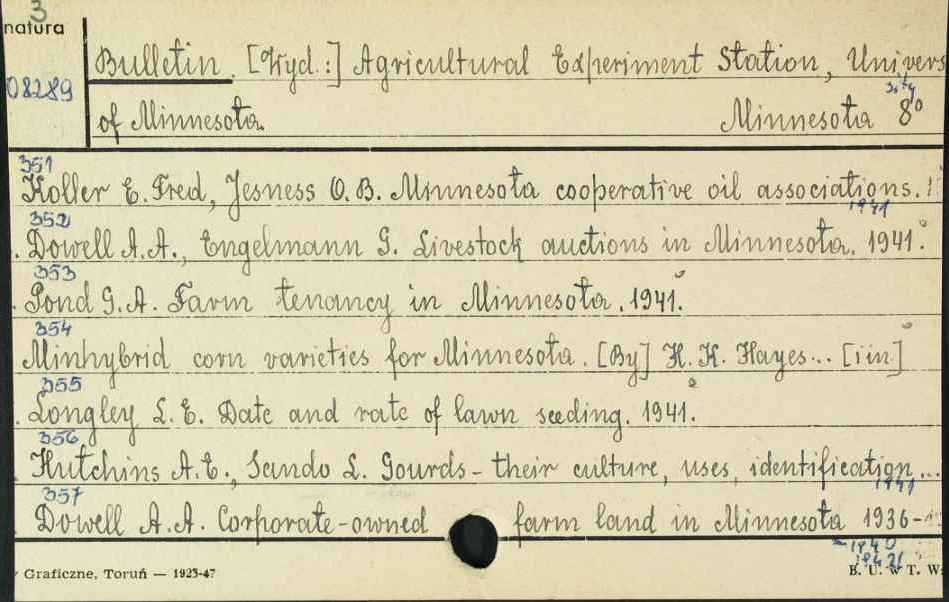 3
natura
08289
Bulletin [Wyd.:] Agricultural Experiment Station, Univers
sity
of Minnesota. Minnesota 8°
351
Koller E. Fred, Jesness O. B. Minnesota cooperative oil associations.
1941
352
Dowell A.A., Engelmann G. Livestock auctions in Minnesota. 1941.
353
Pond G.A. Farm tenancy in Minnesota. 1941.
354
Minhybrid corn varieties for Minnesota. [By] H. K. Hayes... [i in]
355
Longley L. E. Date and rate of lawn seeding. 1941.
356
Hutchins A.E., Sando L. Gourds - their culture, uses, identification...
1941
357
Dowell A.A. Corporate-owned farm land in Minnesota 1936-
-1940
1942
Graficzne, Toruń — 1923-47 B. U. w T. W